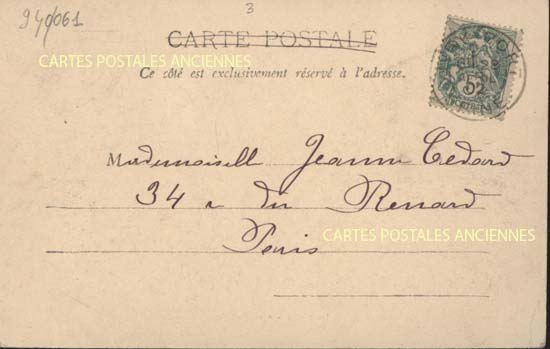 940061
3
CARTE POSTALE
CARTES POSTALES ANCIENNES
Ce côté est exclusivement réservé à l'adresse.
Mademoiselle Jeanne Cedard
34 r du Renard
Paris
CARTES POSTALES ANCIENNES